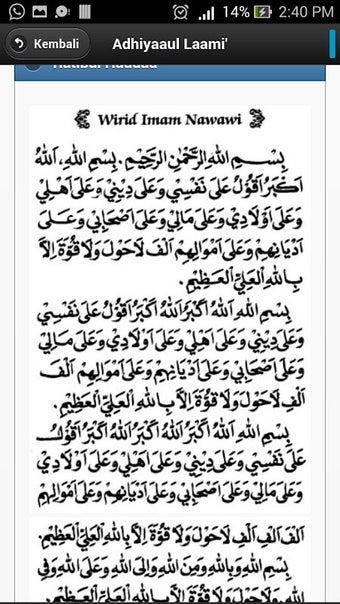 14% 2:40 PM
Kembali
Adhiyaaul Laami'
Wirid Imam Nawawi
بِسْــمِ اللهِ الرَّحْمٰنِ الرَّحِيْمِ. بِسْمِ اللهِ، اَللهُ
اَكْبَرُ اَقُوْلُ عَلَى نَفْسِيْ وَعَلَى دِيْنِيْ وَعَلَى اَهْلِيْ
وَعَلَى اَوْلَادِيْ وَعَلَى مَالِيْ وَعَلَى اَصْحَابِيْ وَعَــلَى
اَدْيَانِهِمْ وَعَلَى اَمْوَالِهِمْ اَلْفَ لَاحَوْلَ وَلَا قُوَّةَ اِلَّا
بِاللهِ الْعَلِيِّ الْعَظِيْمِ.
بِسْمِ اللهِ اَللهُ اَكْبَرُ اَللهُ اَكْبَرُ اَقُوْلُ عَلَى نَفْسِيْ
وَعَلَى دِيْنِيْ وَعَلَى اَهْلِيْ وَعَلَى اَوْلَادِيْ وَعَلَى مَالِيْ
وَعَلَى اَصْحَابِيْ وَعَلَى اَدْيَانِهِمْ وَعَلَى اَمْوَالِهِمْ اَلْفَ
اَلْفِ لَاحَوْلَ وَلَا قُوَّةَ اِلَّا بِاللهِ الْعَلِيِّ الْعَظِيْمِ.
بِسْمِ اللهِ اَللهُ اَكْبَرُ اَللهُ اَكْبَرُ اَللهُ اَكْبَرُ اَقُوْلُ
عَلَى نَفْسِيْ وَعَلَى دِيْنِيْ وَعَلَى اَهْلِيْ وَعَلَى اَوْلَادِيْ
وَعَلَى مَالِيْ وَعَلَى اَصْحَابِيْ وَعَلَى اَدْيَانِهِمْ وَعَلَى اَمْوَالِهِمْ
اَلْفَ اَلْفِ اَلْفِ لَاحَوْلَ وَلَا قُوَّةَ اِلَّا بِاللهِ الْعَلِيِّ الْعَظِيْمِ.
بِسْمِ اللهِ وَبِاللهِ وَمِنَ اللهِ وَاِلَى اللهِ وَعَلَى اللهِ وَفِى